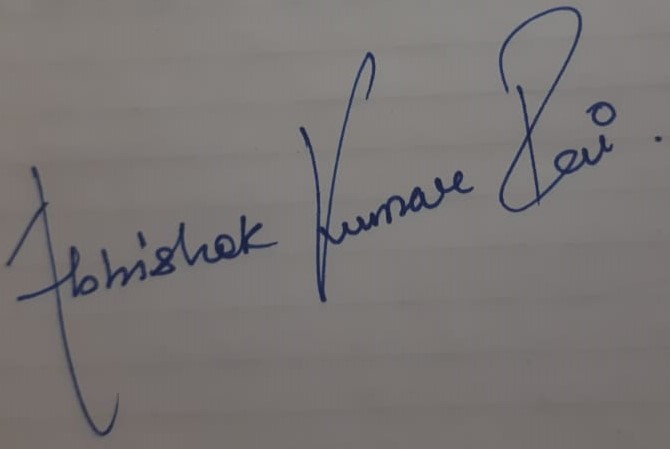 Abhishek Kumar Rai.